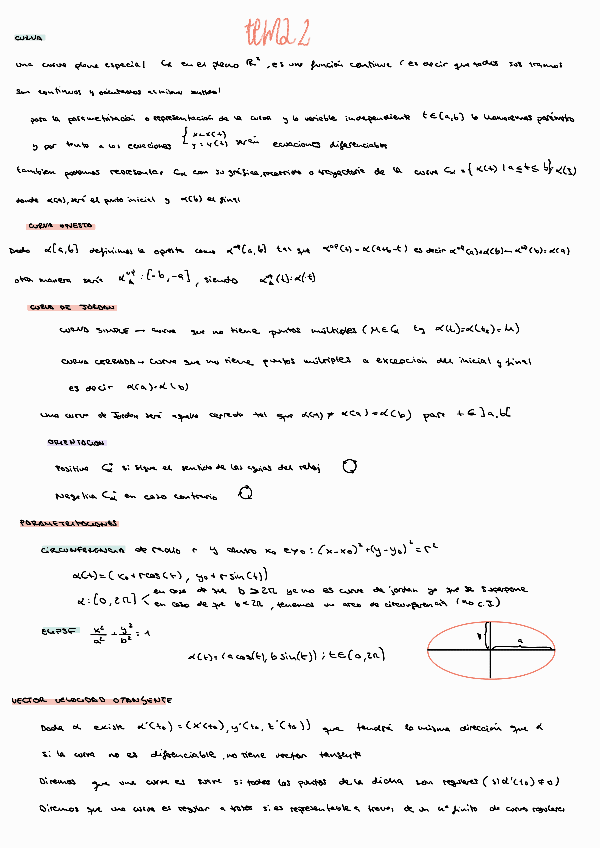 tema 2
CURVA
una curva plana especial Cα en el plano ℝ², es una función continua (es decir que todos sus tramos
son continuos y orientamos al mismo sentido)
para la parametrización o representación de la curva y la variable independiente t∈[a,b] lo llamaremos parámetro
y por tanto a las ecuaciones { x=x(t) y=y(t) serán ecuaciones diferenciables
también podemos representar Cα con su gráfica, recorrido o trayectoria de la curva Cα = {α(t) | a≤t≤b}
donde α(a), será el punto inicial y α(b) el final
CURVA OPUESTA
Dado α[a,b] definimos la opuesta como α^op[a,b] tal que α^op(t)=α(a+b-t) es decir α^op(a)=α(b) α^op(b)=α(a)
otra manera sería α^op:[-b,-a], siendo α^op(t)=α(-t)
CURVA DE JORDAN
CURVA SIMPLE → curva que no tiene puntos múltiples (M∈Cα tq α(t₁)=α(t₂)=M)
CURVA CERRADA → curva que no tiene puntos múltiples a excepción del inicial y final
es decir α(a)=α(b)
una curva de Jordan será aquella cerrada tal que α(t) ≠ α(a)=α(b) para t∈]a,b[
ORIENTACION
Positiva Cα⁺ si sigue el sentido de las agujas del reloj
Negativa Cα⁻ en caso contrario
PARAMETRIZACIONES
CIRCUNFERENCIA de radio r y centro x₀ e y₀ : (x-x₀)²+(y-y₀)²=r²
α(t)=(x₀+r cos(t), y₀+r sin(t))
α:[0,2π] < en caso de que b>2π ya no es curva de jordan ya que se superpone
en caso de que b<2π, tenemos un arco de circunferencia (no C.J)
ELIPSE x²/a² + y²/b² = 1
b a
α(t)=(a cos(t), b sin(t)) ; t∈[0,2π]
VECTOR VELOCIDAD O TANGENTE
Dada α existe α'(t₀)=(x'(t₀), y'(t₀), z'(t₀)) que tendrá la misma dirección que α
si la curva no es diferenciable, no tiene vector tangente
Diremos que una curva es suave si todos los puntos de la dicha son regulares (si α'(t₀)≠0)
Diremos que una curva es regular a trozos si es representable a través de un nº finito de curvas regulares